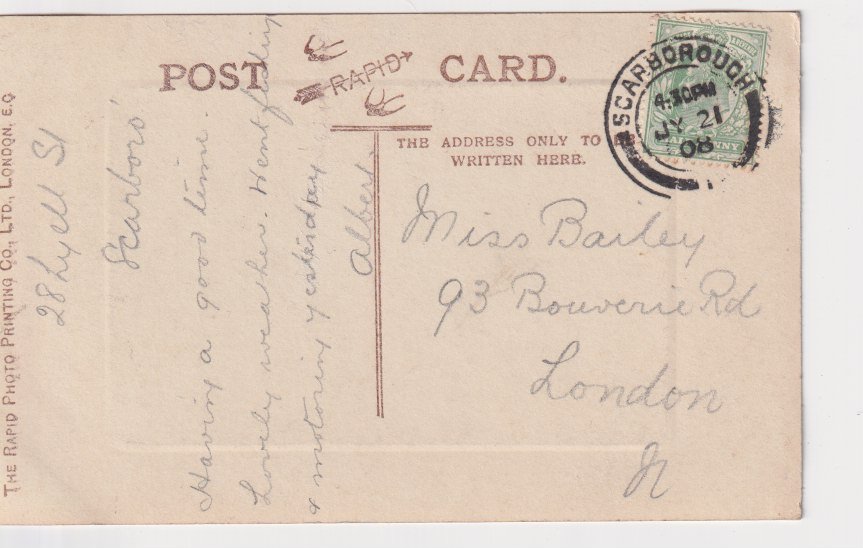 POST CARD.
RAPID
THE ADDRESS ONLY TO BE
WRITTEN HERE.
SCARBOROUGH
4.30PM
JY 21
08
Miss Bailey
93 Bouverie Rd
London
N
28 Lyell St
Scarboro'
Having a good time.
Lovely weather. Went fishing
& motoring yesterday
Albert.
THE RAPID PHOTO PRINTING CO., LTD., LONDON, E.C.